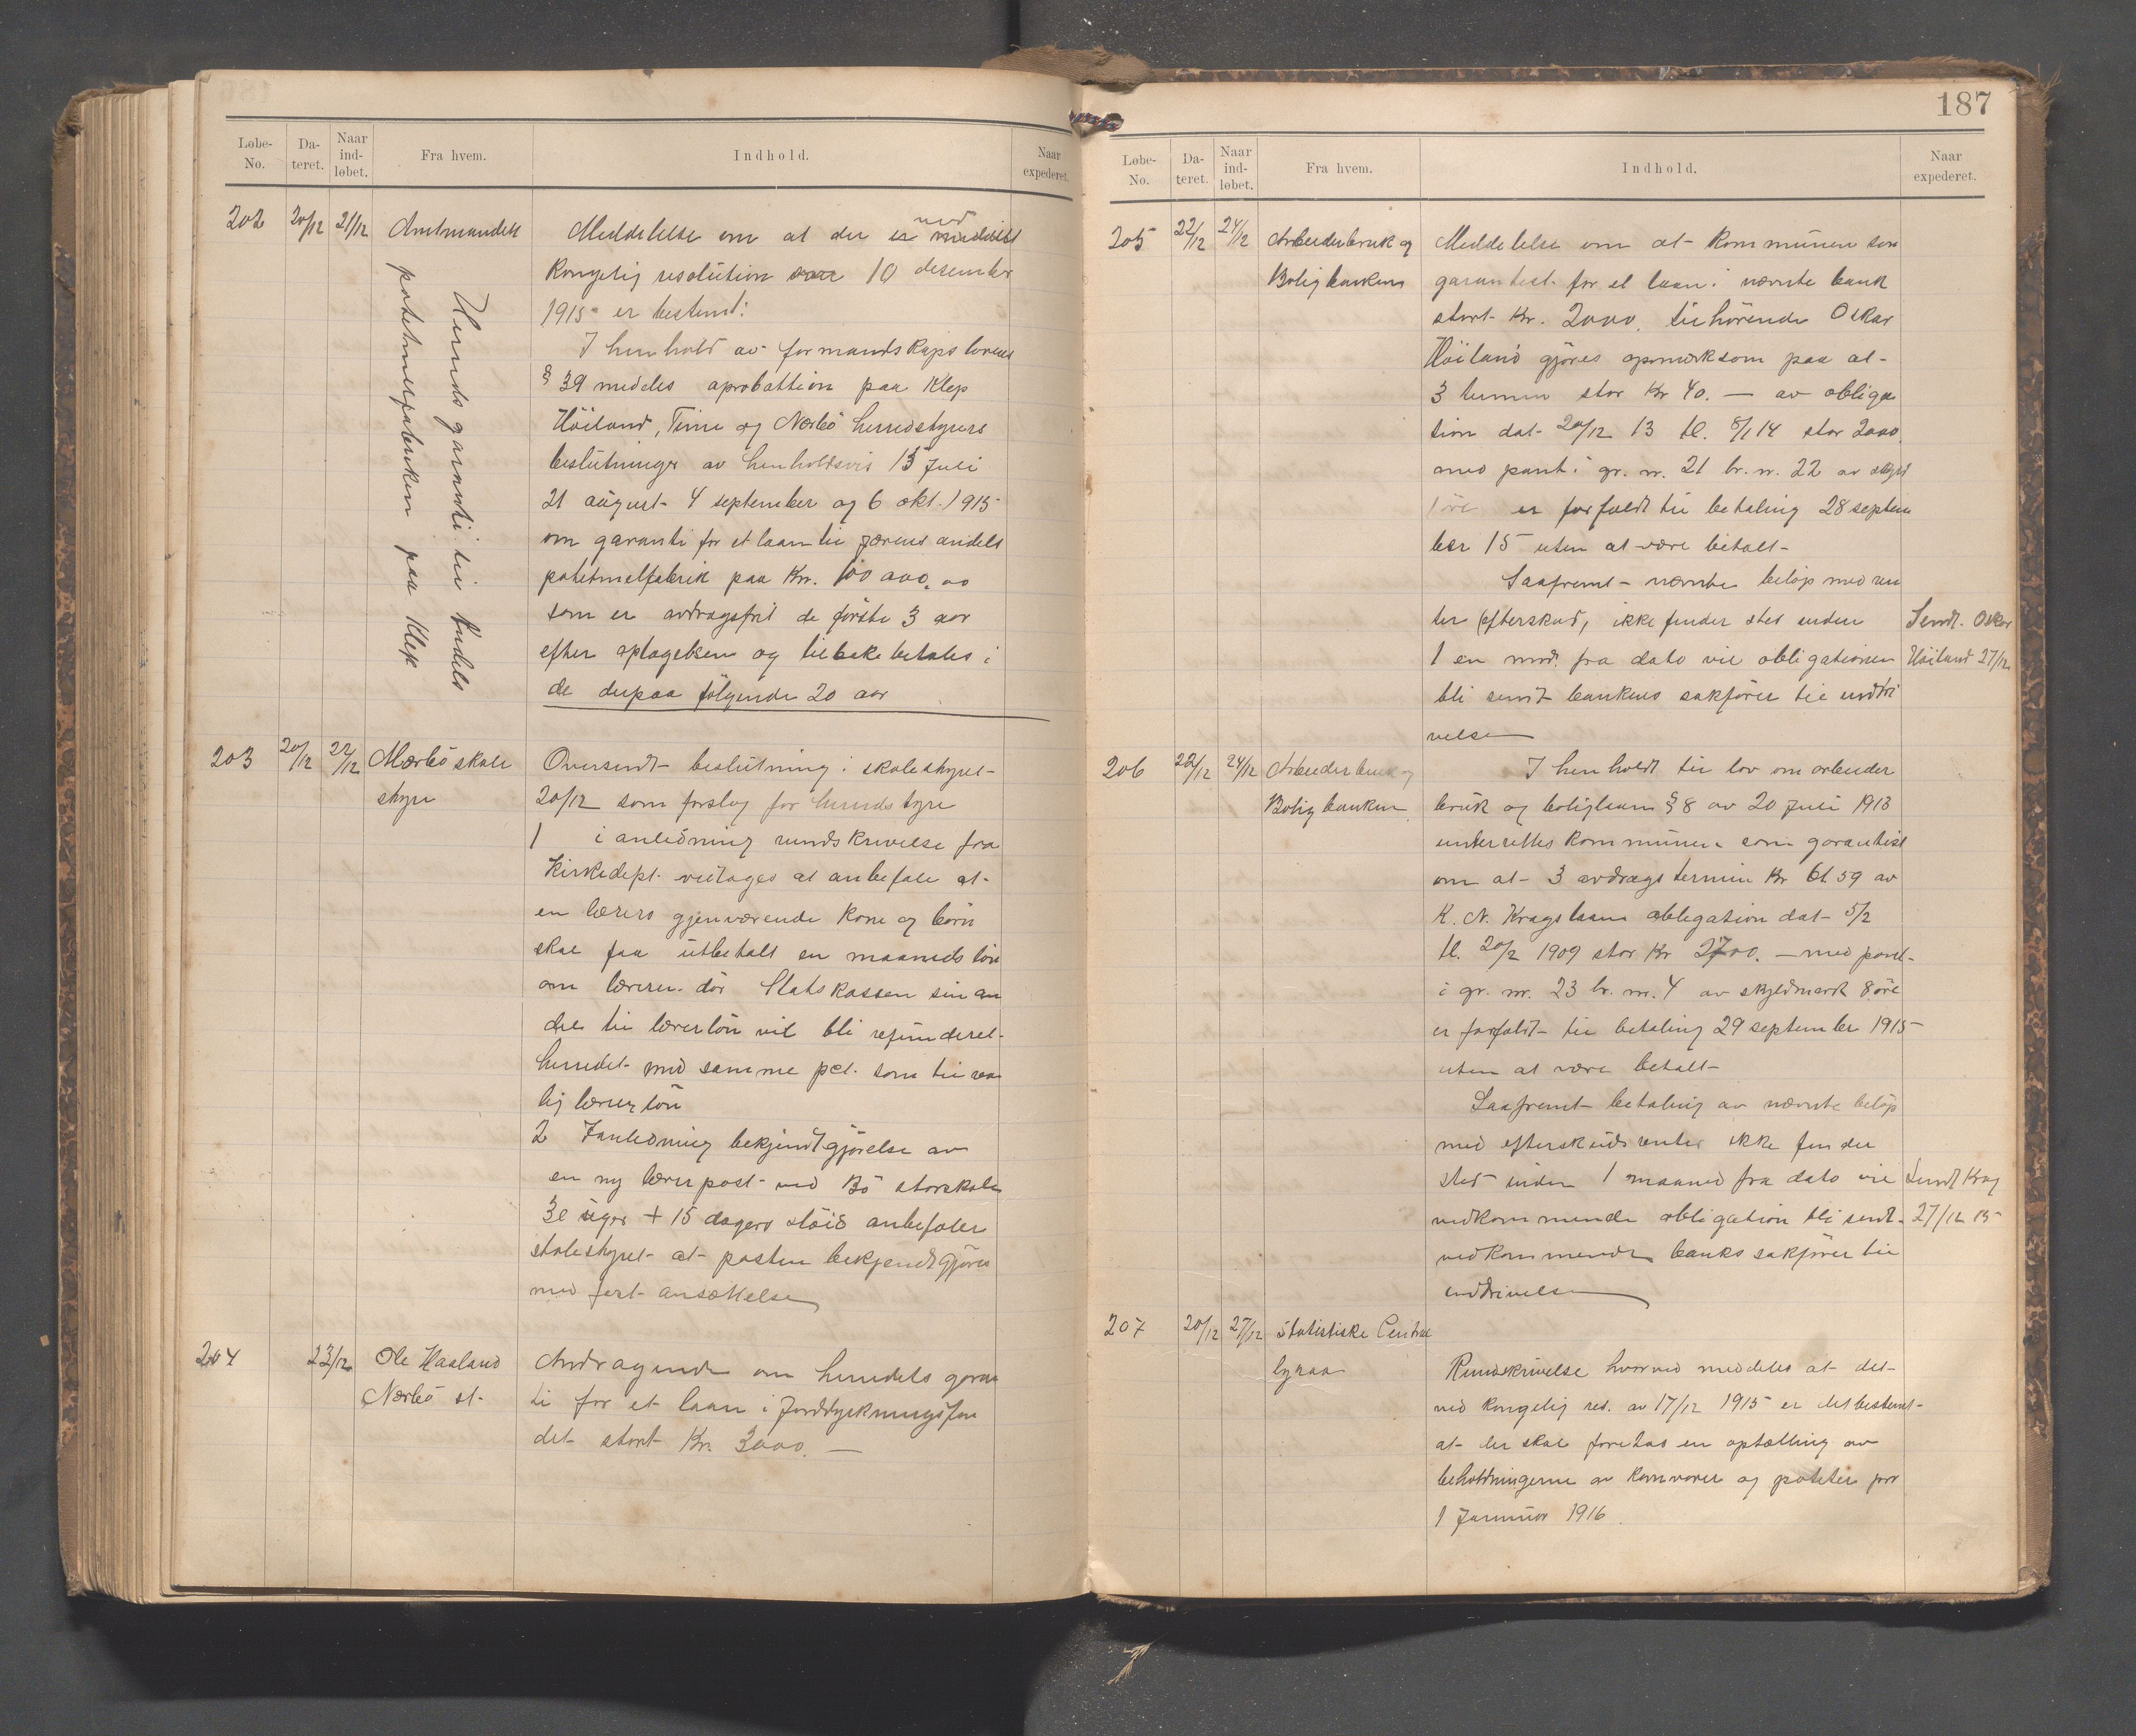 Løbe-No. Da-teret. Naar ind-løbet. Fra hvem. Indhold. Naar expederet.
202 20/12 21/12 Amtmanden
Herreds garanti til Andels
potetmelfabriken paa Klep
Meddelelse om at der er ved
kongelig resolution 10 desember
1915 er bestemt:
I henhold av formandskapsloven
§ 39 meddeles aprobattion paa Klep
Höiland, Time og Nærbö herredstyrers
beslutninger av henholdsvis 13 Juli
21 august 4 september og 6 okt. 1915
om garanti for et laan til Jærens andels
potetmelfabrik paa Kr. 100 000.00
som er avdragsfrit de förste 3 aar
efter optagelsen og tilbakebetales i
de derpaa fölgende 20 aar
203 20/12 22/12 Nærbö skole
styre
Oversendt beslutning i skolestyret
20/12 som forslag for herredstyre
1 i anledning rundskrivelse fra
Kirkedept. vedtages at anbefale at
en lærers gjenværende kone og börn
skal faa utbetalt en maaneds lön
om læreren dör Statskassen sin an
del til lærerlön vil bli refunderet
herredet med samme pct. som til van
lig lærerlön
2 I anledning bekjendtgjörelse av
en ny lærerpost ved Bö storskole
30 uger + 15 dagers slöid anbefaler
skolestyret at posten bekjendtgjöres
med fast ansættelse
204 23/12 Ole Haaland
Nærbö st.
Andragende om herredets garan
ti for et laan i Jorddyrkningsfon
det stort Kr. 3000. —
187
Løbe-No. Da-teret. Naar ind-løbet. Fra hvem. Indhold. Naar expederet.
205 22/12 24/12 Arbeiderbruk og
Boligbanken
Meddelelse om at kommunen som
garantist for et laan i nævnte bank
stort Kr. 2000. tilhörende Oskar
Höiland gjöres opmerksom paa at
3 termin stor Kr 40. — av obliga
tion dat. 20/12 13 tl. 8/1 14 stor 2000
med pant i gr. nr. 21 br. nr. 22 av skyld
1 öre er forfaldt til betaling 28 septem
ber 15 uten at være betalt
Saafremt nævnte belöp med ren
ter (efterskud, ikke finder sted inden
1 en mnd. fra dato vil obligationen
bli sendt bankens sakförer til inddri
velse
Sendt Oskar
Höiland 27/12
206 22/12 24/12 Arbeiderbruk og
Boligbanken
I henhold til lov om arbeider
bruk og boliglaan § 8 av 20 Juli 1913
underrettes kommunen som garantist
om at 3 avdrags termin Kr 61.59 av
K. N. Krags laans obligation dat. 5/2
tl. 20/2 1909 stor Kr 2700. — med pant
i gr. nr. 23 br. nr. 4 av skyldmark 8 öre
er forfaldt til betaling 29 september 1915
uten at være betalt
Saafremt betaling av nævnte belöp
med efterskuds renter ikke finder
sted inden 1 maaned fra dato vil
vedkommende obligation bli sendt
vedkommende banks sakförer til
inddrivelse
Sendt Krag
27/12 15
207 20/12 27/12 Statistiske Central
byraa
Rundskrivelse hvorved meddeles at det
ved kongelig res. av 17/12 1915 er det bestemt
at der skal foretas en optælling av
beholdningerne av kornvarer og poteter pr
1 Januar 1916.